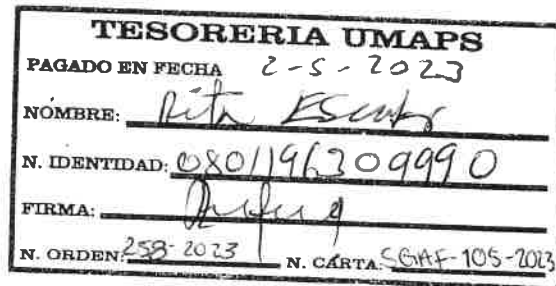 TESORERIA UMAPS
PAGADO EN FECHA 2-5-2023
NOMBRE: Rita Escobar
N. IDENTIDAD: 0801196309990
FIRMA:
N. ORDEN: 258-2023 N. CARTA: SGAF-105-2023